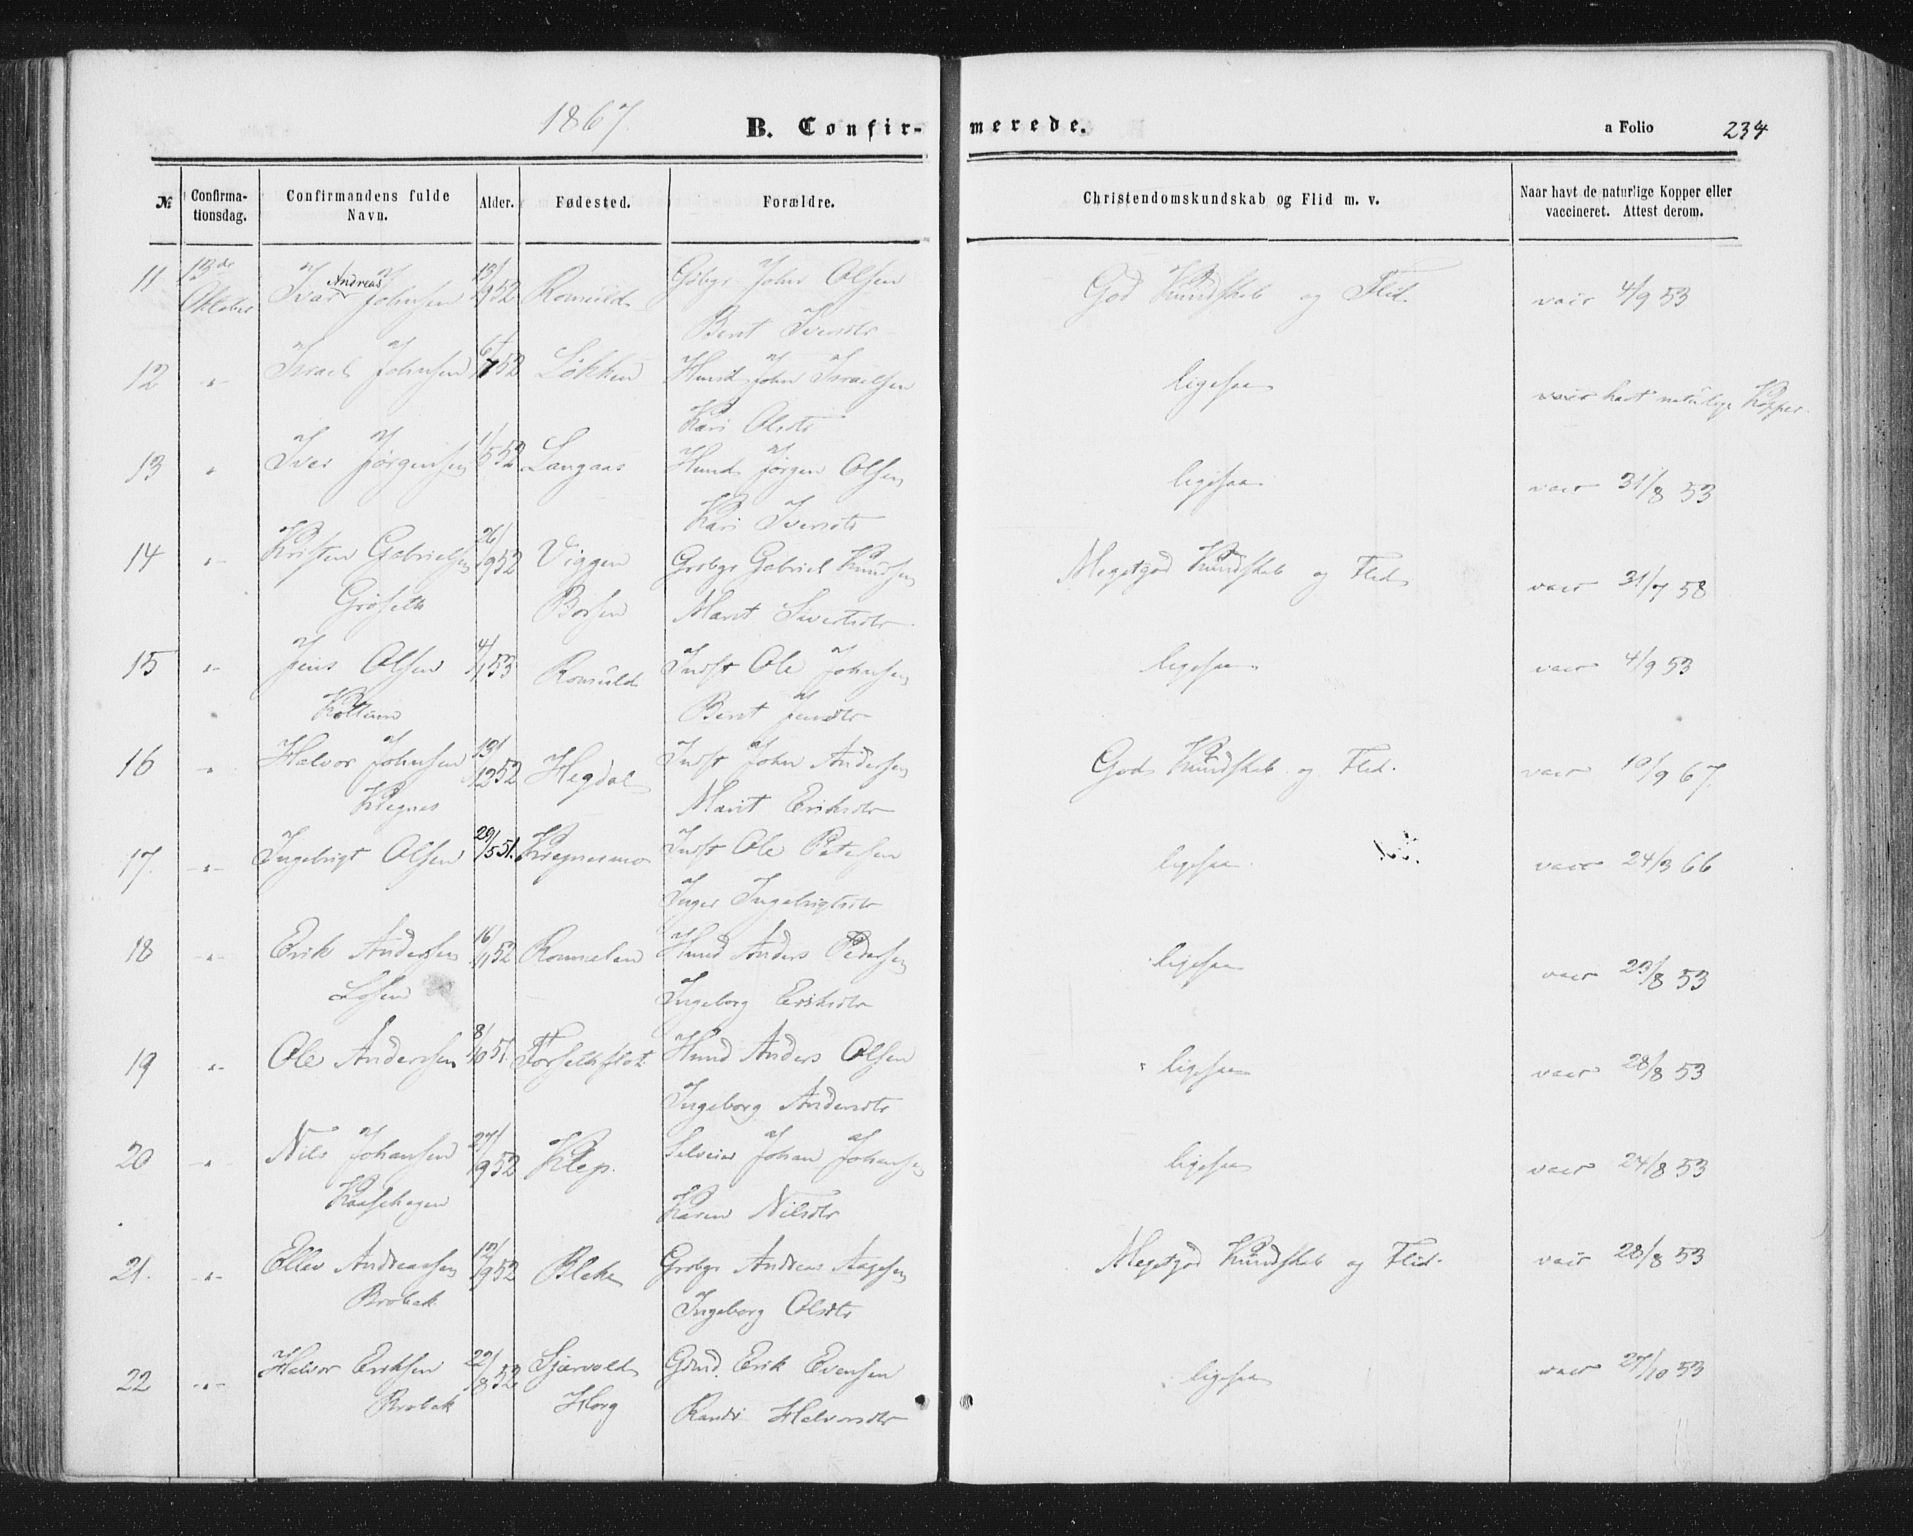 1867. B. Confir- merede. a Folio 234
№ Confirma-tionsdag. Confirmandens fulde Navn. Alder. Fødested. Forældre. Christendomskundskab og Flid m. v. Naar havt de naturlige Kopper eller vaccineret. Attest derom.
11 13de Oktober Ivar Andreas Johnsen 13/9 52 Romuld Gbbgr John Olsen God Kundskab og Flid. vacc 4/9 53
Berit Iversdtr
12 -"- Israel Johnsen 6/7 52 Løkken Husmd John Israelsen ligesaa havt naturlige Kopper.
Kari Olsdtr
13 " Iver Jørgensen 1/5 52 Langaas Husmd Jørgen Olsen ligesaa vacc 31/8 53
Kari Iversdtr
14 -"- Kristen Gabrielsen 26/9 52 Viggen Grdbgr Gabriel Knudsen Megetgod Kundskab og Flid vacc 31/7 58
Grøseth Børsen Marit Sivertsdtr
15 -"- Jens Olsen 4/1 53 Romuld Indst Ole Johnsen ligesaa vacc 4/9 53
Køttum Berit Jensdtr
16 -"- Halvor Johnsen 13/12 52 Hegdal Indst John Andersen God Kundskab og Flid. vacc 10/9 67.
Kregnes Marit Eriksdtr
17. -"- Ingebrigt Olsen 29/5 51. Kregnesmo Indst Ole Petersen ligesaa vacc 24/3 66
Inger Ingebrigtsdtr
18 -"- Erik Anderssen 16/11 52 Hmd Anders Pedersen ligesaa vacc 23/8 53
Losen Ingeborg Eriksdtr
19 -"- Ole Anderssen 8/10 51. Forsethflot Hmd Anders Olsen ligesaa vacc 28/8 53
Ingeborg Andersdtr
20 -"- Nils Johansen 27/9 52 Klep. Selveier Johan Johansen ligesaa vacc 24/8 53
Kaashagen Karen Nilsdtr
21. -"- Ellev Andreassen 12/9 52 Blekes Grdbgr Andreas Aagesen Megetgod Kundskab og Flid. vacc 28/8 53
Brobak Ingeborg Olsdtr
22 -"- Halvor Eriksen 22/8 52 Sjærvold Grmd. Erik Evensen ligesaa vacc 27/10 53
Brobak Horg Randi Halvorsdtr